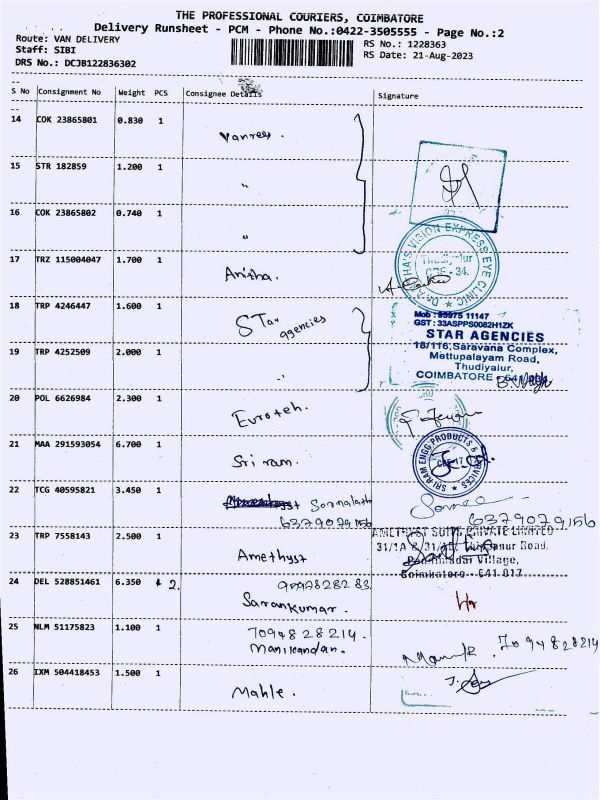 THE PROFESSIONAL COURIERS, COIMBATORE
Delivery Runsheet - PCM - Phone No.:0422-3505555 - Page No.:2
Route: VAN DELIVERY
RS No.: 1228363
Staff: SIBI
RS Date: 21-Aug-2023
DRS No.: DCJB122836302
S No Consignment No Weight PCS Consignee Details Signature
14 COK 23865801 0.830 1
Vanrees.
15 STR 182859 1.200 1
"
16 COK 23865802 0.740 1
"
17 TRZ 115004047 1.700 1
Anitha.
VISION EXPRESS EYE CLINIC
Thudiyalur
CBE - 34.
18 TRP 4246447 1.600 1
STar agencies
Mob : 95975 11147
GST : 33ASPPS0082H1ZK
STAR AGENCIES
18/116,Saravana Complex,
Mettupalayam Road,
Thudiyalur,
COIMBATORE
19 TRP 4252509 2.000 1
"
20 POL 6626984 2.300 1
Euroteh.
21 MAA 291593054 6.700 1
Sri ram.
SRI RAM ENGG PRODUCTS & SERVICES
22 TCG 40595821 3.450 1
6379079156
6379079156
23 TRP 7558143 2.500 1
Amethyst
AMETHYST SUITS PRIVATE LIMITED
Road,
Village,
Coimbatore - 641 017
24 DEL 528851461 6.350 2.
Sarankumar.
25 NLM 51175823 1.100 1
7094828214.
Manikandan.
7094828214
26 IXM 504418453 1.500 1
Mahle.